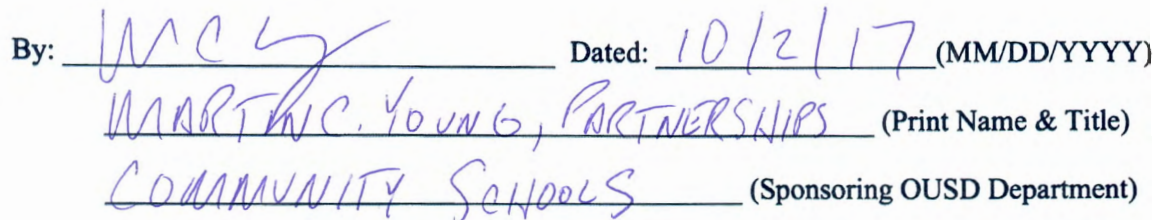 By: Dated: 10/2/17 (MM/DD/YYYY)
MARTIN C. YOUNG, PARTNERSHIPS (Print Name & Title)
COMMUNITY SCHOOLS (Sponsoring OUSD Department)